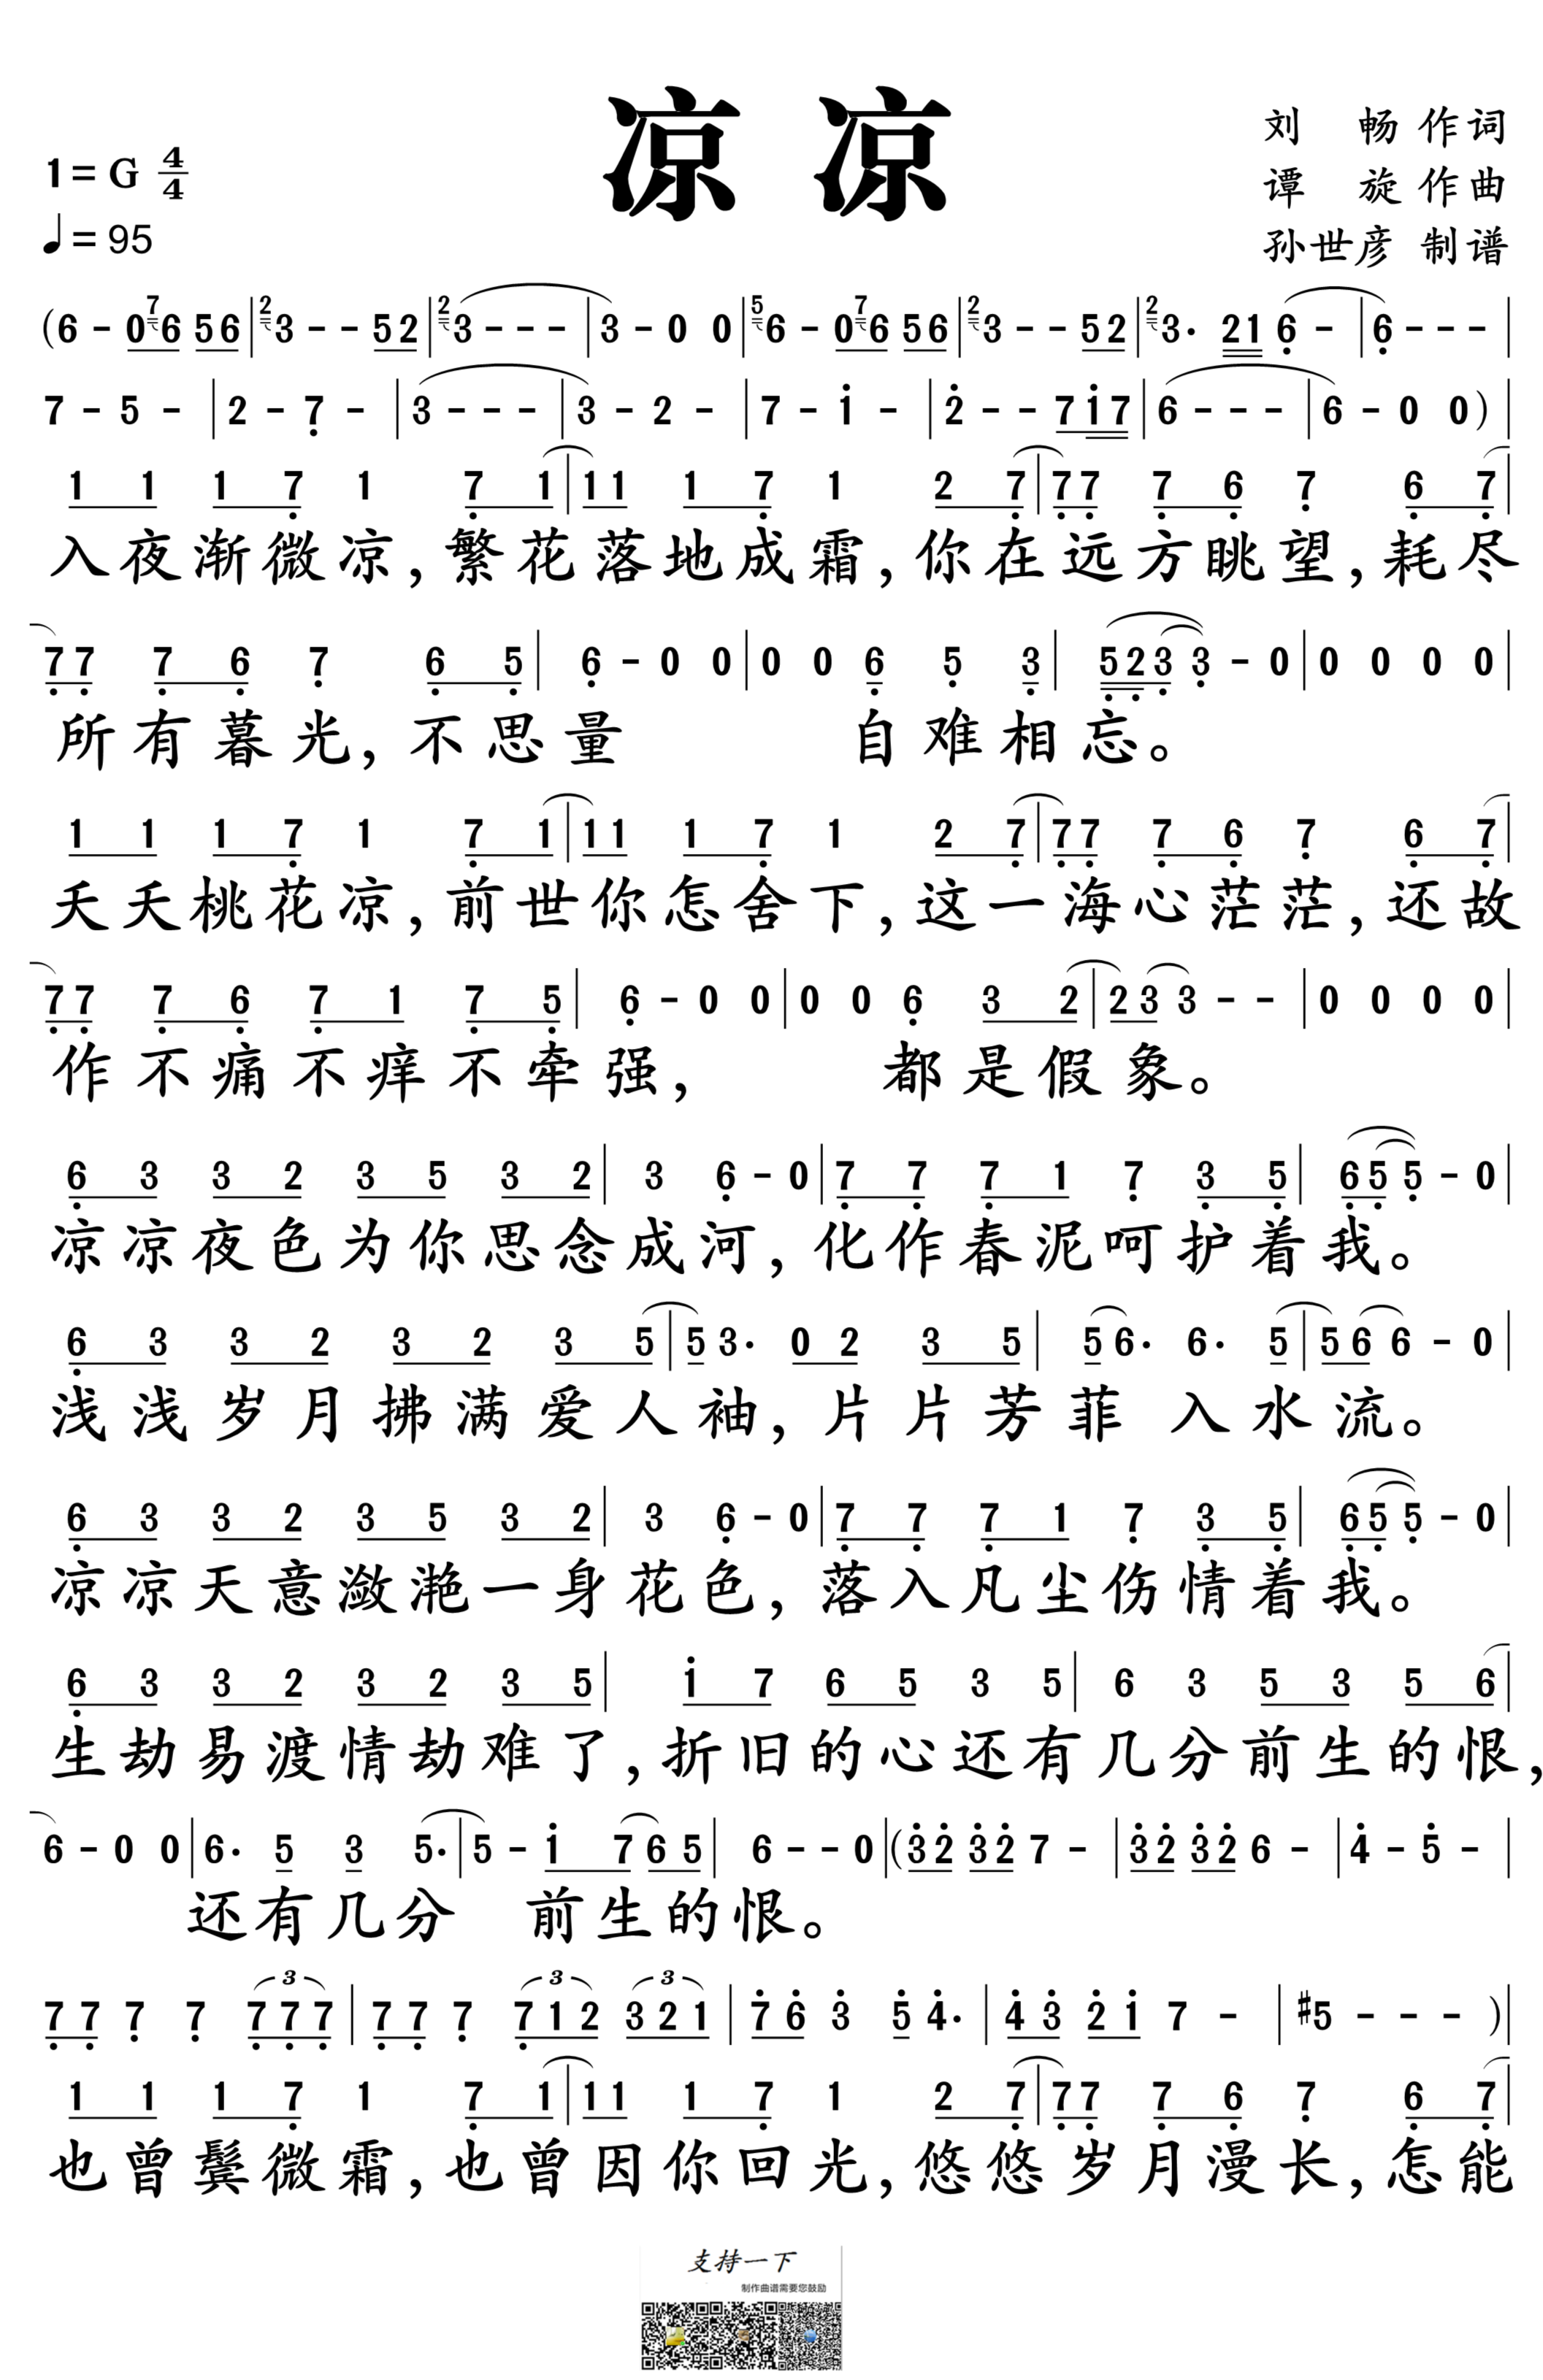 凉 凉
1= G 4/4
♩= 95
刘 畅 作词
谭 旋 作曲
孙世彦 制谱
(6 - 0 7 6 5 6 | 2 3 - - 5 2 | 2 3 - - - | 3 - 0 0 | 5 6 - 0 7 6 5 6 | 2 3 - - 5 2 | 2 3 · 2 1 6̣ - | 6̣ - - - |
7 - 5 - | 2 - 7̣ - | 3 - - - | 3 - 2 - | 7 - 1̇ - | 2̇ - - 7 1̇ 7 | 6 - - - | 6 - 0 0 ) |
1 1 1 7̣ 1 7̣ 1 | 1 1 1 7̣ 1 2 7̣ | 7̣ 7̣ 7̣ 6̣ 7̣ 6̣ 7̣ |
入夜渐微凉,繁花落地成霜,你在远方眺望,耗尽
7̣ 7̣ 7̣ 6̣ 7̣ 6̣ 5̣ | 6̣ - 0 0 | 0 0 6̣ 5̣ 3̣ | 5̣ 2̣ 3̣ 3̣ - 0 | 0 0 0 0 |
所有暮光,不思量 自难相忘。
1 1 1 7̣ 1 7̣ 1 | 1 1 1 7̣ 1 2 7̣ | 7̣ 7̣ 7̣ 6̣ 7̣ 6̣ 7̣ |
夭夭桃花凉,前世你怎舍下,这一海心茫茫,还故
7̣ 7̣ 7̣ 6̣ 7̣ 1 7̣ 5̣ | 6̣ - 0 0 | 0 0 6̣ 3 2 | 2 3 3 - - | 0 0 0 0 |
作不痛不痒不牵强, 都是假象。
6̣ 3 3 2 3 5 3 2 | 3 6̣ - 0 | 7̣ 7̣ 7̣ 1 7̣ 3̣ 5̣ | 6̣ 5̣ 5̣ - 0 |
凉凉夜色为你思念成河,化作春泥呵护着我。
6̣ 3 3 2 3 2 3 5 | 5 3 · 0 2 3 5 | 5 6 · 6 · 5 | 5 6 6 - 0 |
浅浅岁月拂满爱人袖,片片芳菲 入水流。
6̣ 3 3 2 3 5 3 2 | 3 6̣ - 0 | 7̣ 7̣ 7̣ 1 7̣ 3̣ 5̣ | 6̣ 5̣ 5̣ - 0 |
凉凉天意潋滟一身花色,落入凡尘伤情着我。
6̣ 3 3 2 3 2 3 5 | 1̇ 7 6 5 3 5 | 6 3 5 3 5 6 |
生劫易渡情劫难了,折旧的心还有几分前生的恨,
6 - 0 0 | 6 · 5 3 5 · | 5 - 1̇ 7 6 5 | 6 - - 0 | (3̇ 2̇ 3̇ 2̇ 7 - | 3̇ 2̇ 3̇ 2̇ 6 - | 4̇ - 5̇ - |
还有几分 前生的恨。
7̣ 7̣ 7̣ 7̣ 3 7̣ 7̣ 7̣ | 7̣ 7̣ 7̣ 3 7̣ 1 2 3 3 2 1 | 7̇ 6̇ 3̇ 5̇ 4̇ · | 4̇ 3̇ 2̇ 1̇ 7 - | ♯5 - - - ) |
1 1 1 7̣ 1 7̣ 1 | 1 1 1 7̣ 1 2 7̣ | 7̣ 7̣ 7̣ 6̣ 7̣ 6̣ 7̣ |
也曾鬓微霜,也曾因你回光,悠悠岁月漫长,怎能
支持一下
制作曲谱需要您鼓励